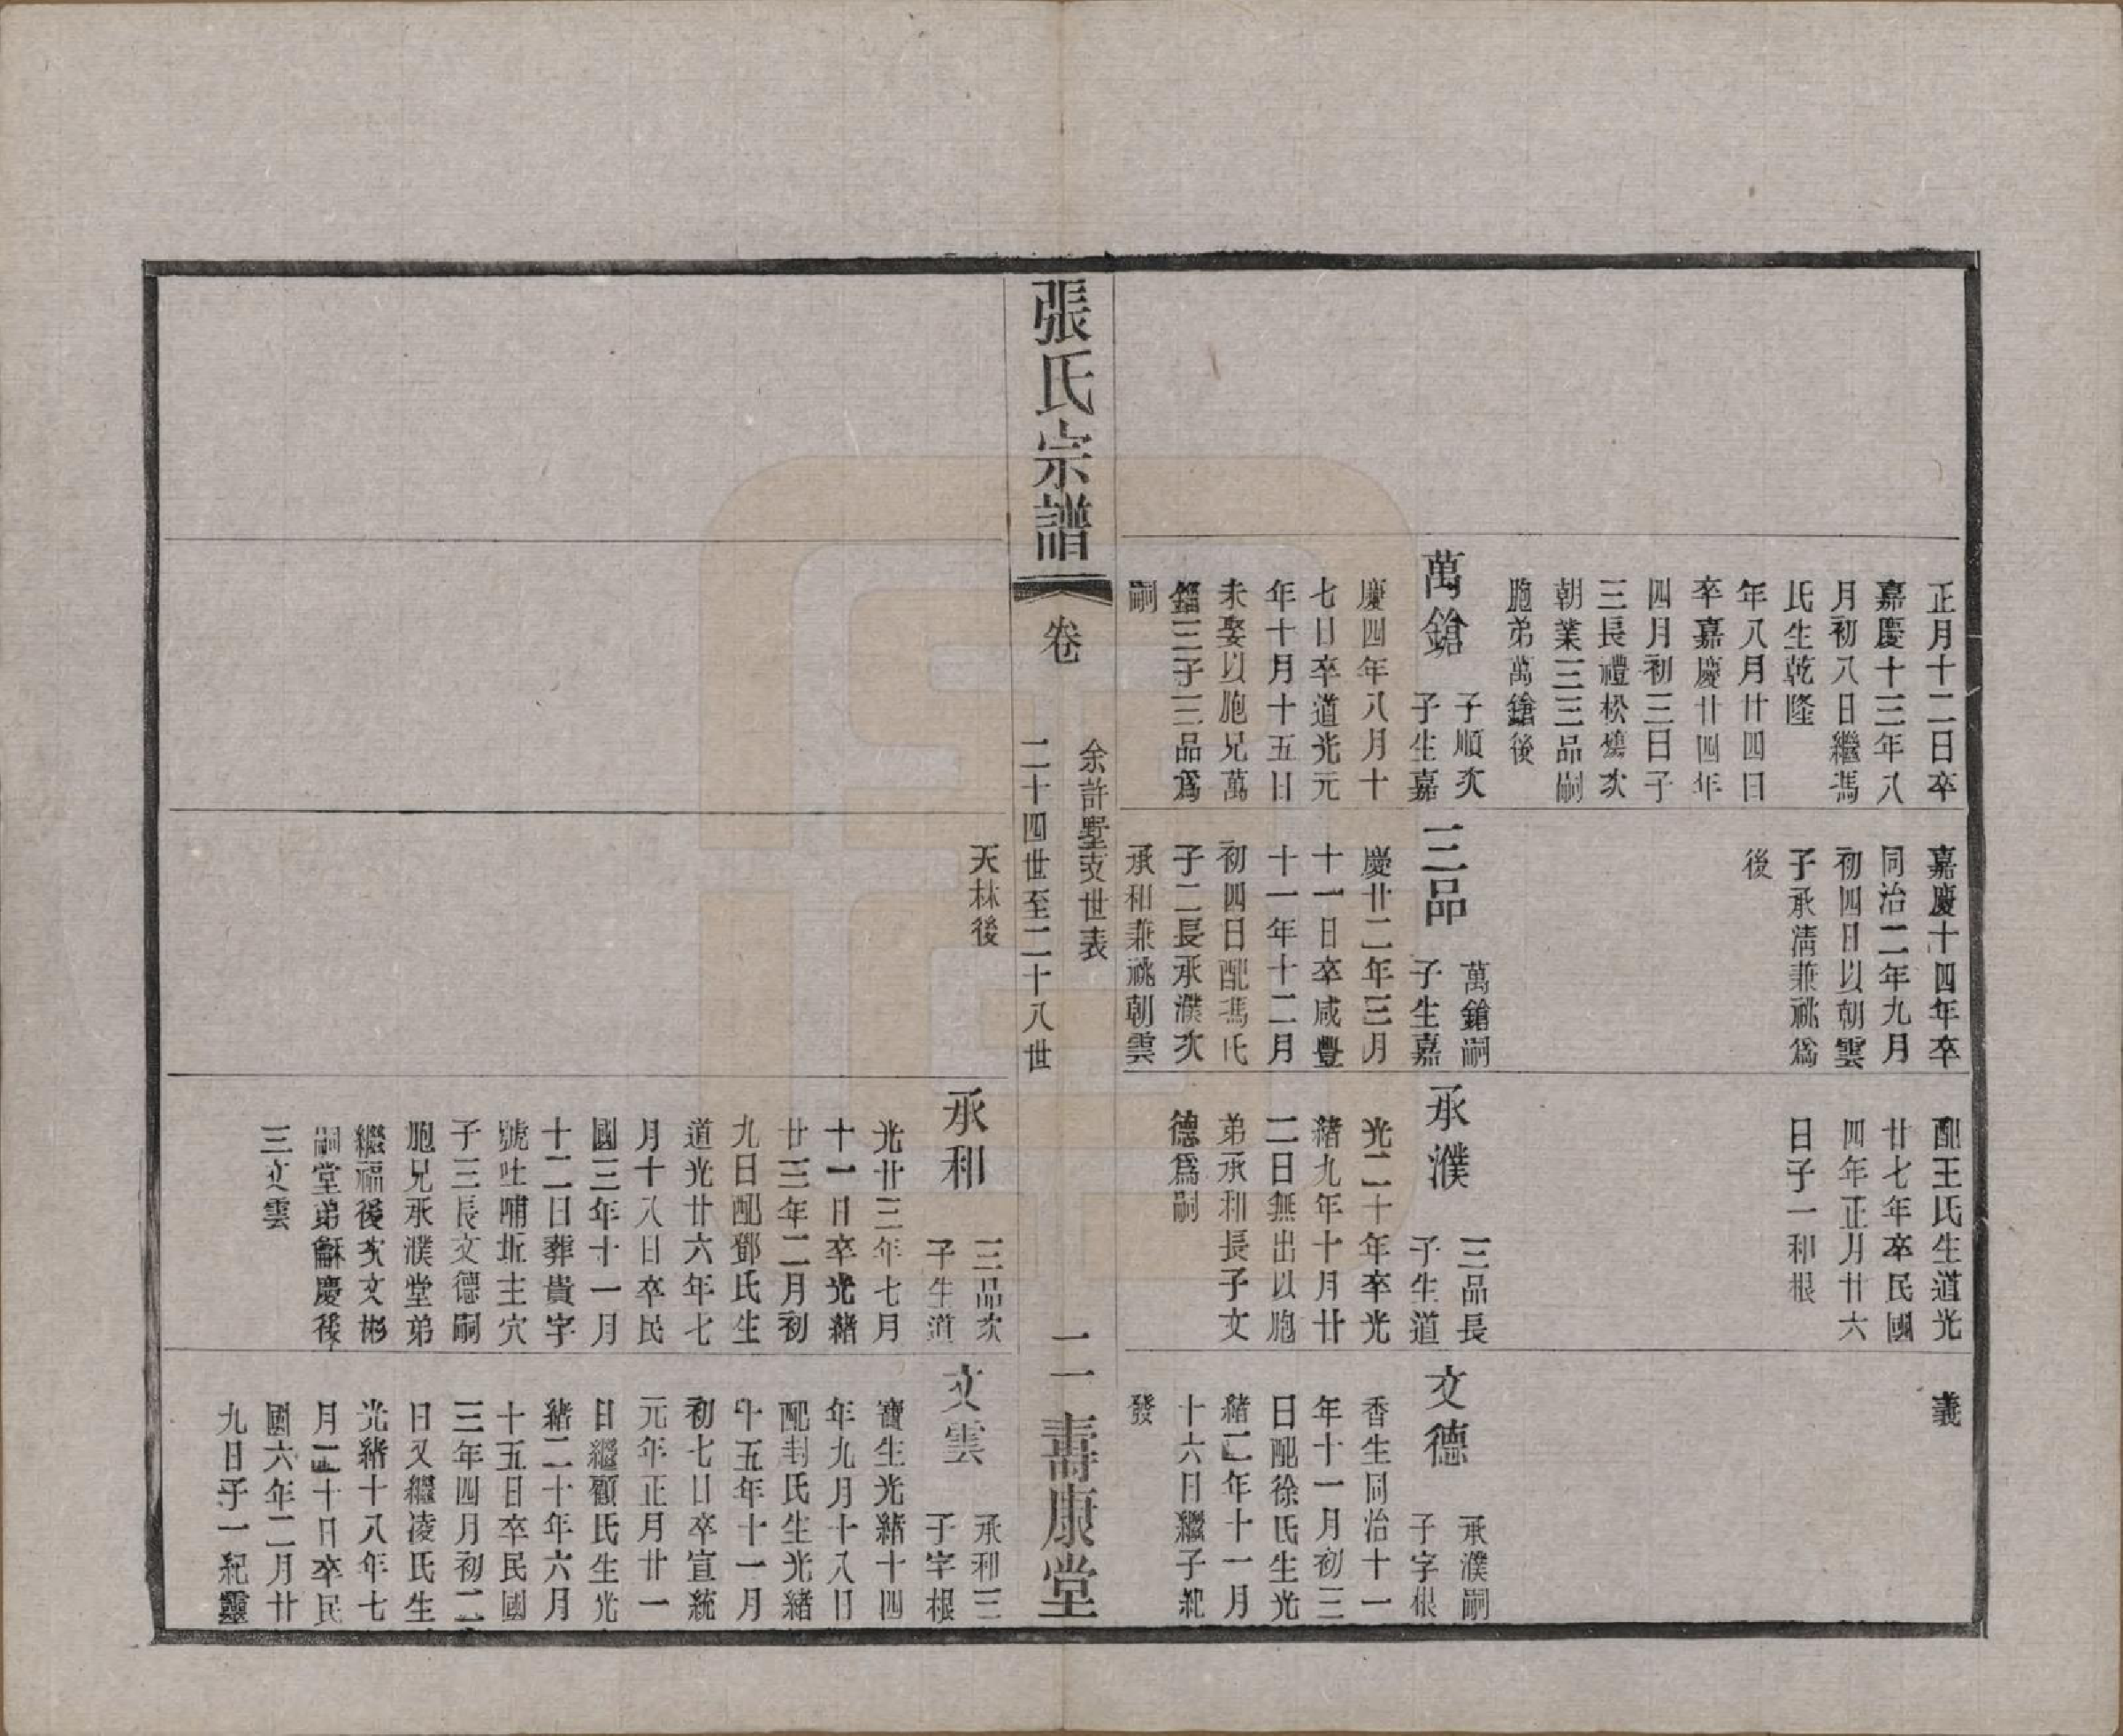 正月十二日卒
嘉慶十三年八
月初八日繼馮
氏生乾隆
年八月廿四日
卒嘉慶廿四年
四月初三日子
三長禮松懷次
朝業三三品嗣
胞弟萬鎗後
萬鎗
子順次
子生嘉
慶四年八月十
七日卒道光元
年十月十五日
未娶以胞兄萬
鎦三子三品為
嗣
嘉慶十四年卒
同治二年九月
初四日以朝雲
子承淸兼祧爲
後
三品
萬鎗嗣
子生嘉
慶廿二年三月
十一日卒咸豐
十一年十二月
初四日配馮氏
子二長承濮次
承和兼祧朝雲
配王氏生道光
廿七年卒民國
四年正月廿六
日子一和根
承濮
三品長
子生道
光二十年卒光
緒九年十月廿
二日無出以胞
弟承和長子文
德爲嗣
義
文德
承濮嗣
子字根
香生同治十一
年十一月初三
日配徐氏生光
緒二年十一月
十六日繼子紀
發
張氏宗譜
卷
余許墅支世表
二十四世至二十八世
二
壽康堂
天林後
承和
三品次
子生道
光廿三年七月
十一日卒光緒
廿三年二月初
九日配鄧氏生
道光廿六年七
月十八日卒民
國三年十一月
十二日葬貴字
號吐哺坵主穴
子三長文德嗣
胞兄承濮堂弟
繼福後次文彬
嗣堂弟龢慶後
三文雲
文雲
承和三
子字根
寶生光緒十四
年九月十八日
配封氏生光緒
十五年十一月
初七日卒宣統
元年正月廿一
日繼顧氏生光
緒二十年六月
十五日卒民國
三年四月初二
日又繼凌氏生
光緒十八年七
月二十日卒民
國六年二月廿
九日子一紀靈